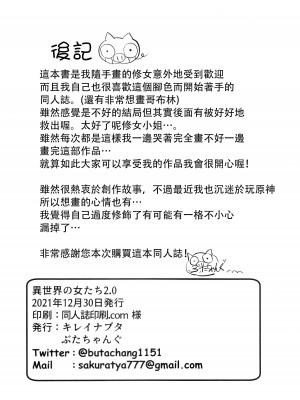 後記
這本書是我隨手畫的修女意外地受到歡迎
而且我自己也很喜歡這個腳色而開始著手的
同人誌。(還有非常想畫哥布林)
雖然感覺是不好的結局但其實後面有被好好地
救出喔。太好了呢修女小姐…。
雖然每次都是這樣我一邊哭著完全畫不好一邊
畫完這部作品…
就算如此大家可以享受我的作品我會很開心喔！
雖然很熱衷於創作故事，不過最近我也沉迷於玩原神
所以想畫的心情也有…
我覺得自己過度修飾了有可能有一格不小心
漏掉了…
非常感謝您本次購買這本同人誌！
ぶたちゃんぐ
異世界の女たち2.0
2021年12月30日発行
印刷：同人誌印刷.com 様
発行：キレイナブタ
ぶたちゃんぐ
Twitter : @butachang1151
Mail : sakuratya777@gmail.com